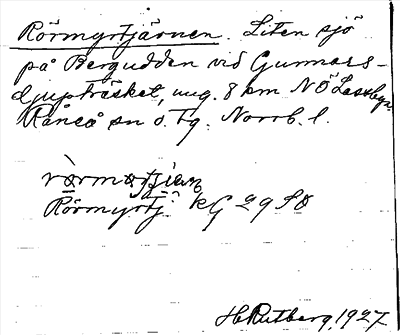 Rörmyrtjärnen. Liten sjö
på Bergudden vid Gunnars-
djupträsket, ung. 8 km NÖ Lassbyn.
Råneå sn o. tg. Norrb. l.
Rörmyrtj. kG 29 SO
H Rutberg, 1927